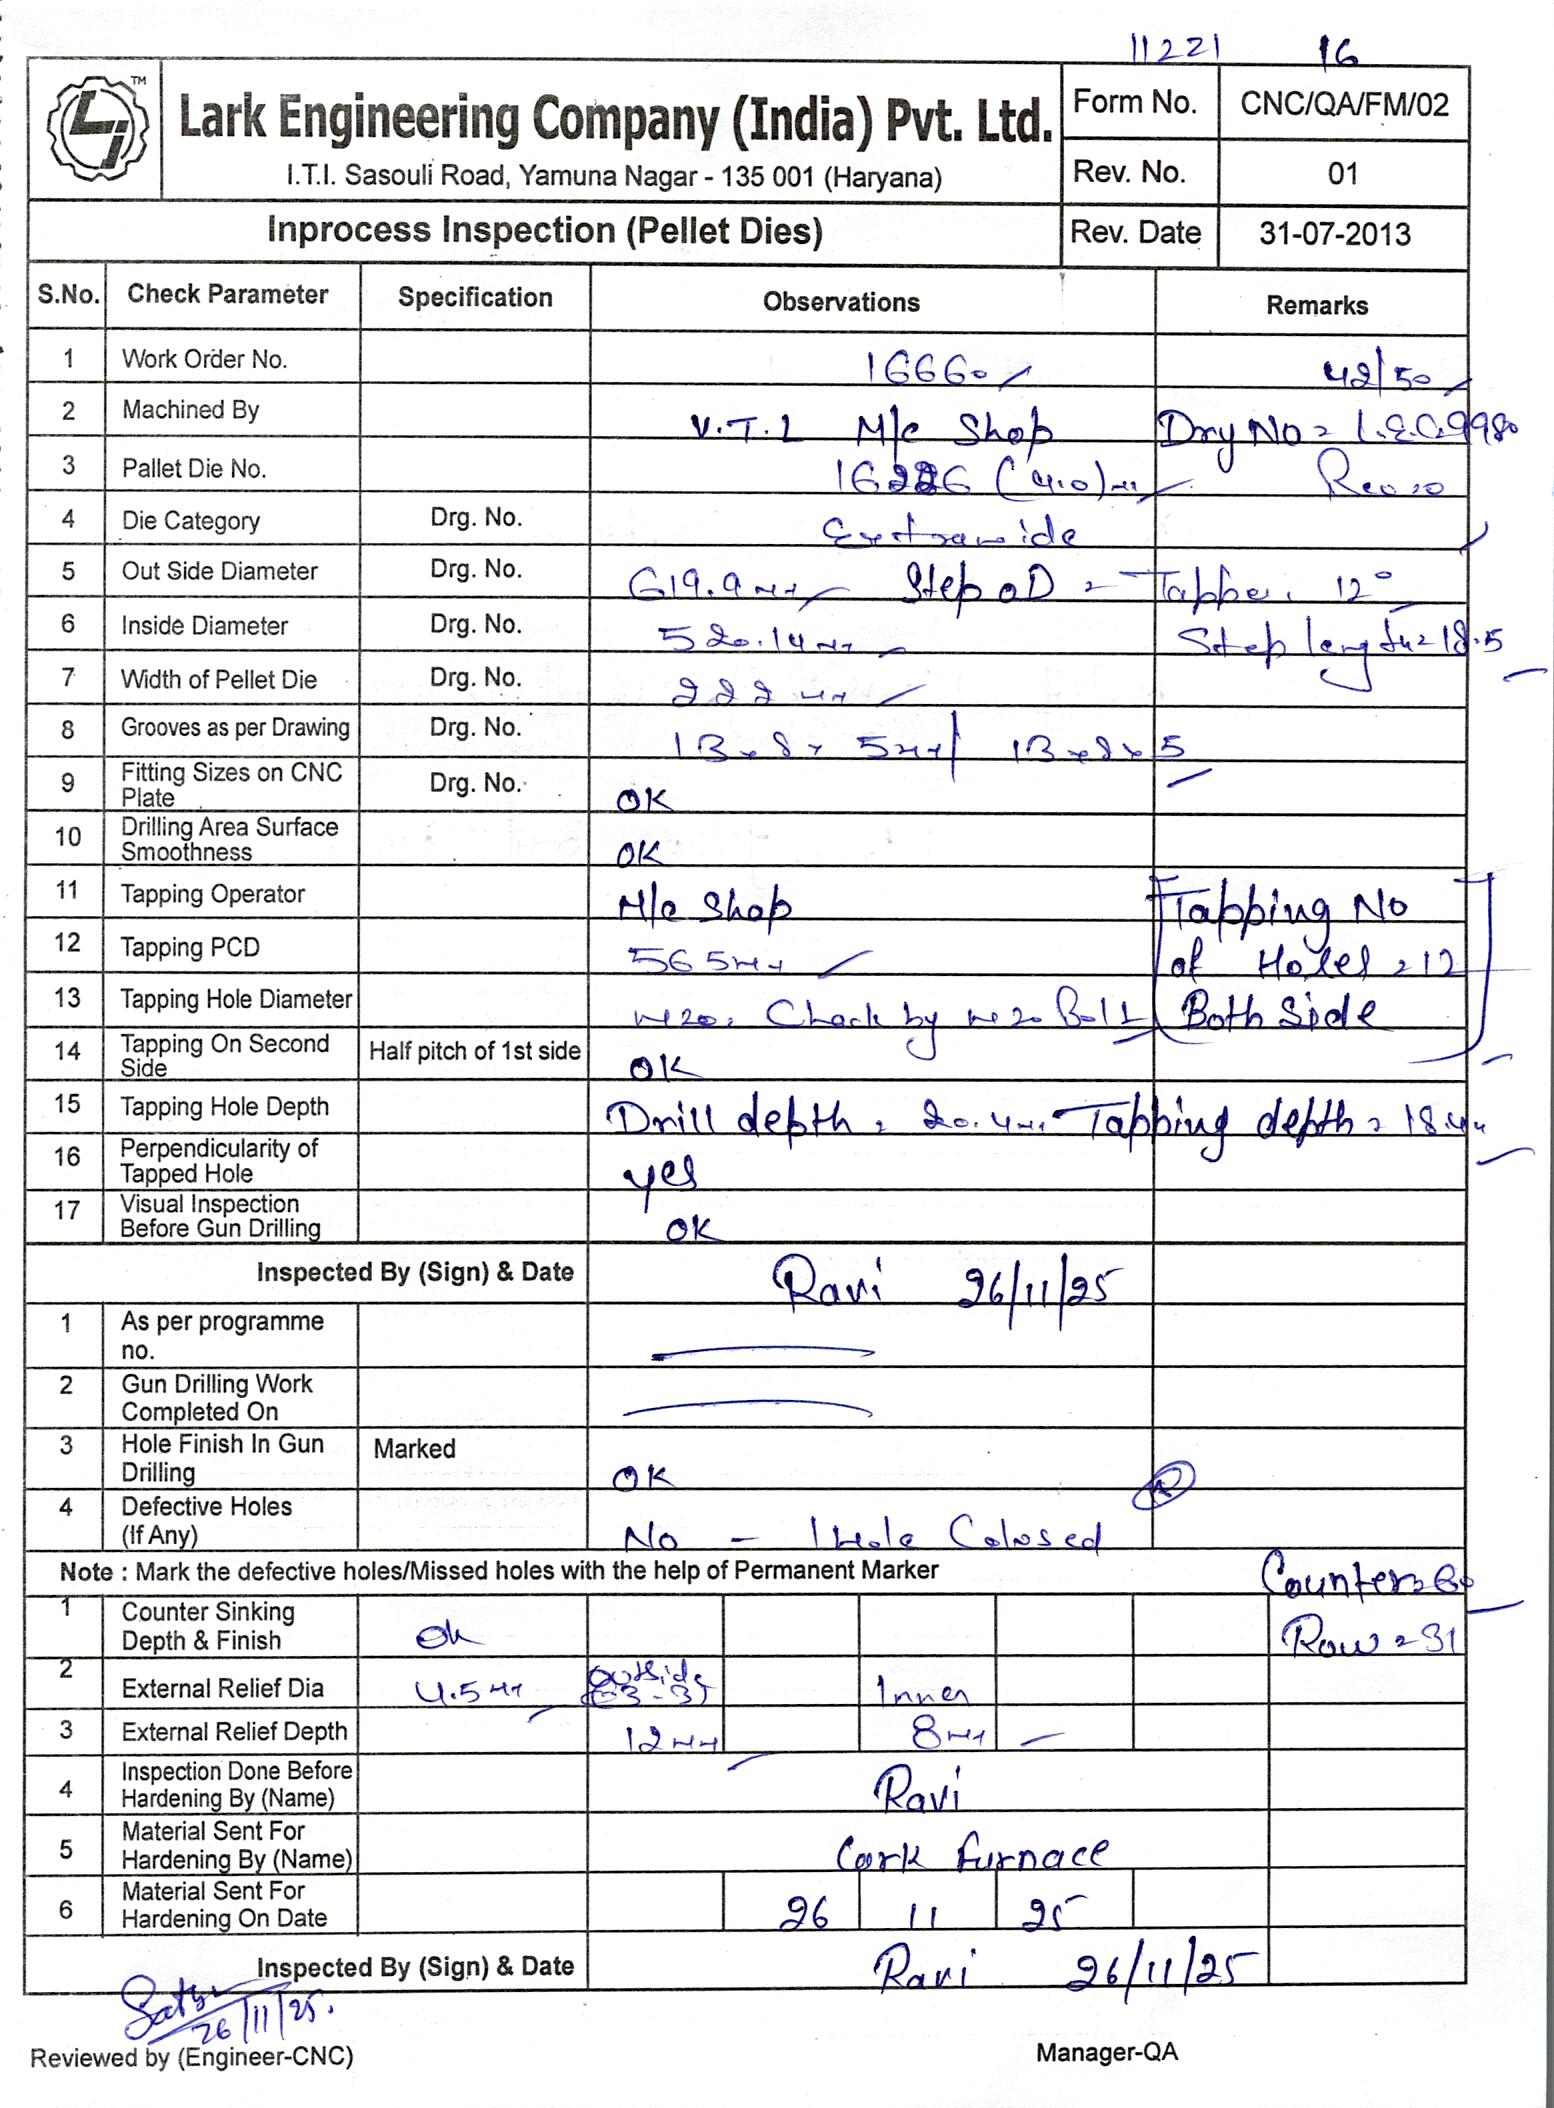 11221 16
TM
Lark Engineering Company (India) Pvt. Ltd.
I.T.I. Sasouli Road, Yamuna Nagar - 135 001 (Haryana)
Form No. CNC/QA/FM/02
Rev. No. 01
Inprocess Inspection (Pellet Dies)
Rev. Date 31-07-2013
S.No. Check Parameter Specification Observations Remarks
1 Work Order No. 16660 42/50
2 Machined By V.T.L M/c Shop Drg No = L.E.C.9980
3 Pallet Die No. 16226 (4.0)
4 Die Category Drg. No. Extrawide
5 Out Side Diameter Drg. No. 619.9 Step OD = Tapper 12°
6 Inside Diameter Drg. No. 520.14 Step length = 18.5
7 Width of Pellet Die Drg. No. 222
8 Grooves as per Drawing Drg. No. 13 x 8 x 5 / 13 x 8 x 5
9 Fitting Sizes on CNC Plate Drg. No. OK
10 Drilling Area Surface Smoothness OK
11 Tapping Operator M/c Shop Tapping No
12 Tapping PCD 565 of Holes = 12
13 Tapping Hole Diameter M20 Check by M20 Bolt Both Side
14 Tapping On Second Side Half pitch of 1st side OK
15 Tapping Hole Depth Drill depth = 20.4 Tapping depth = 18.4
16 Perpendicularity of Tapped Hole yes
17 Visual Inspection Before Gun Drilling OK
Inspected By (Sign) & Date Ravi 26/11/25
1 As per programme no.
2 Gun Drilling Work Completed On
3 Hole Finish In Gun Drilling Marked OK
4 Defective Holes (If Any) No - 1 Hole Colosed
Note : Mark the defective holes/Missed holes with the help of Permanent Marker Counter = 60
1 Counter Sinking Depth & Finish Ok Row = 31
2 External Relief Dia 4.5 Outside Inner
3 External Relief Depth 12 8
4 Inspection Done Before Hardening By (Name) Ravi
5 Material Sent For Hardening By (Name) Cark Furnace
6 Material Sent For Hardening On Date 26 11 25
Inspected By (Sign) & Date Ravi 26/11/25
26/11/25.
Reviewed by (Engineer-CNC) Manager-QA